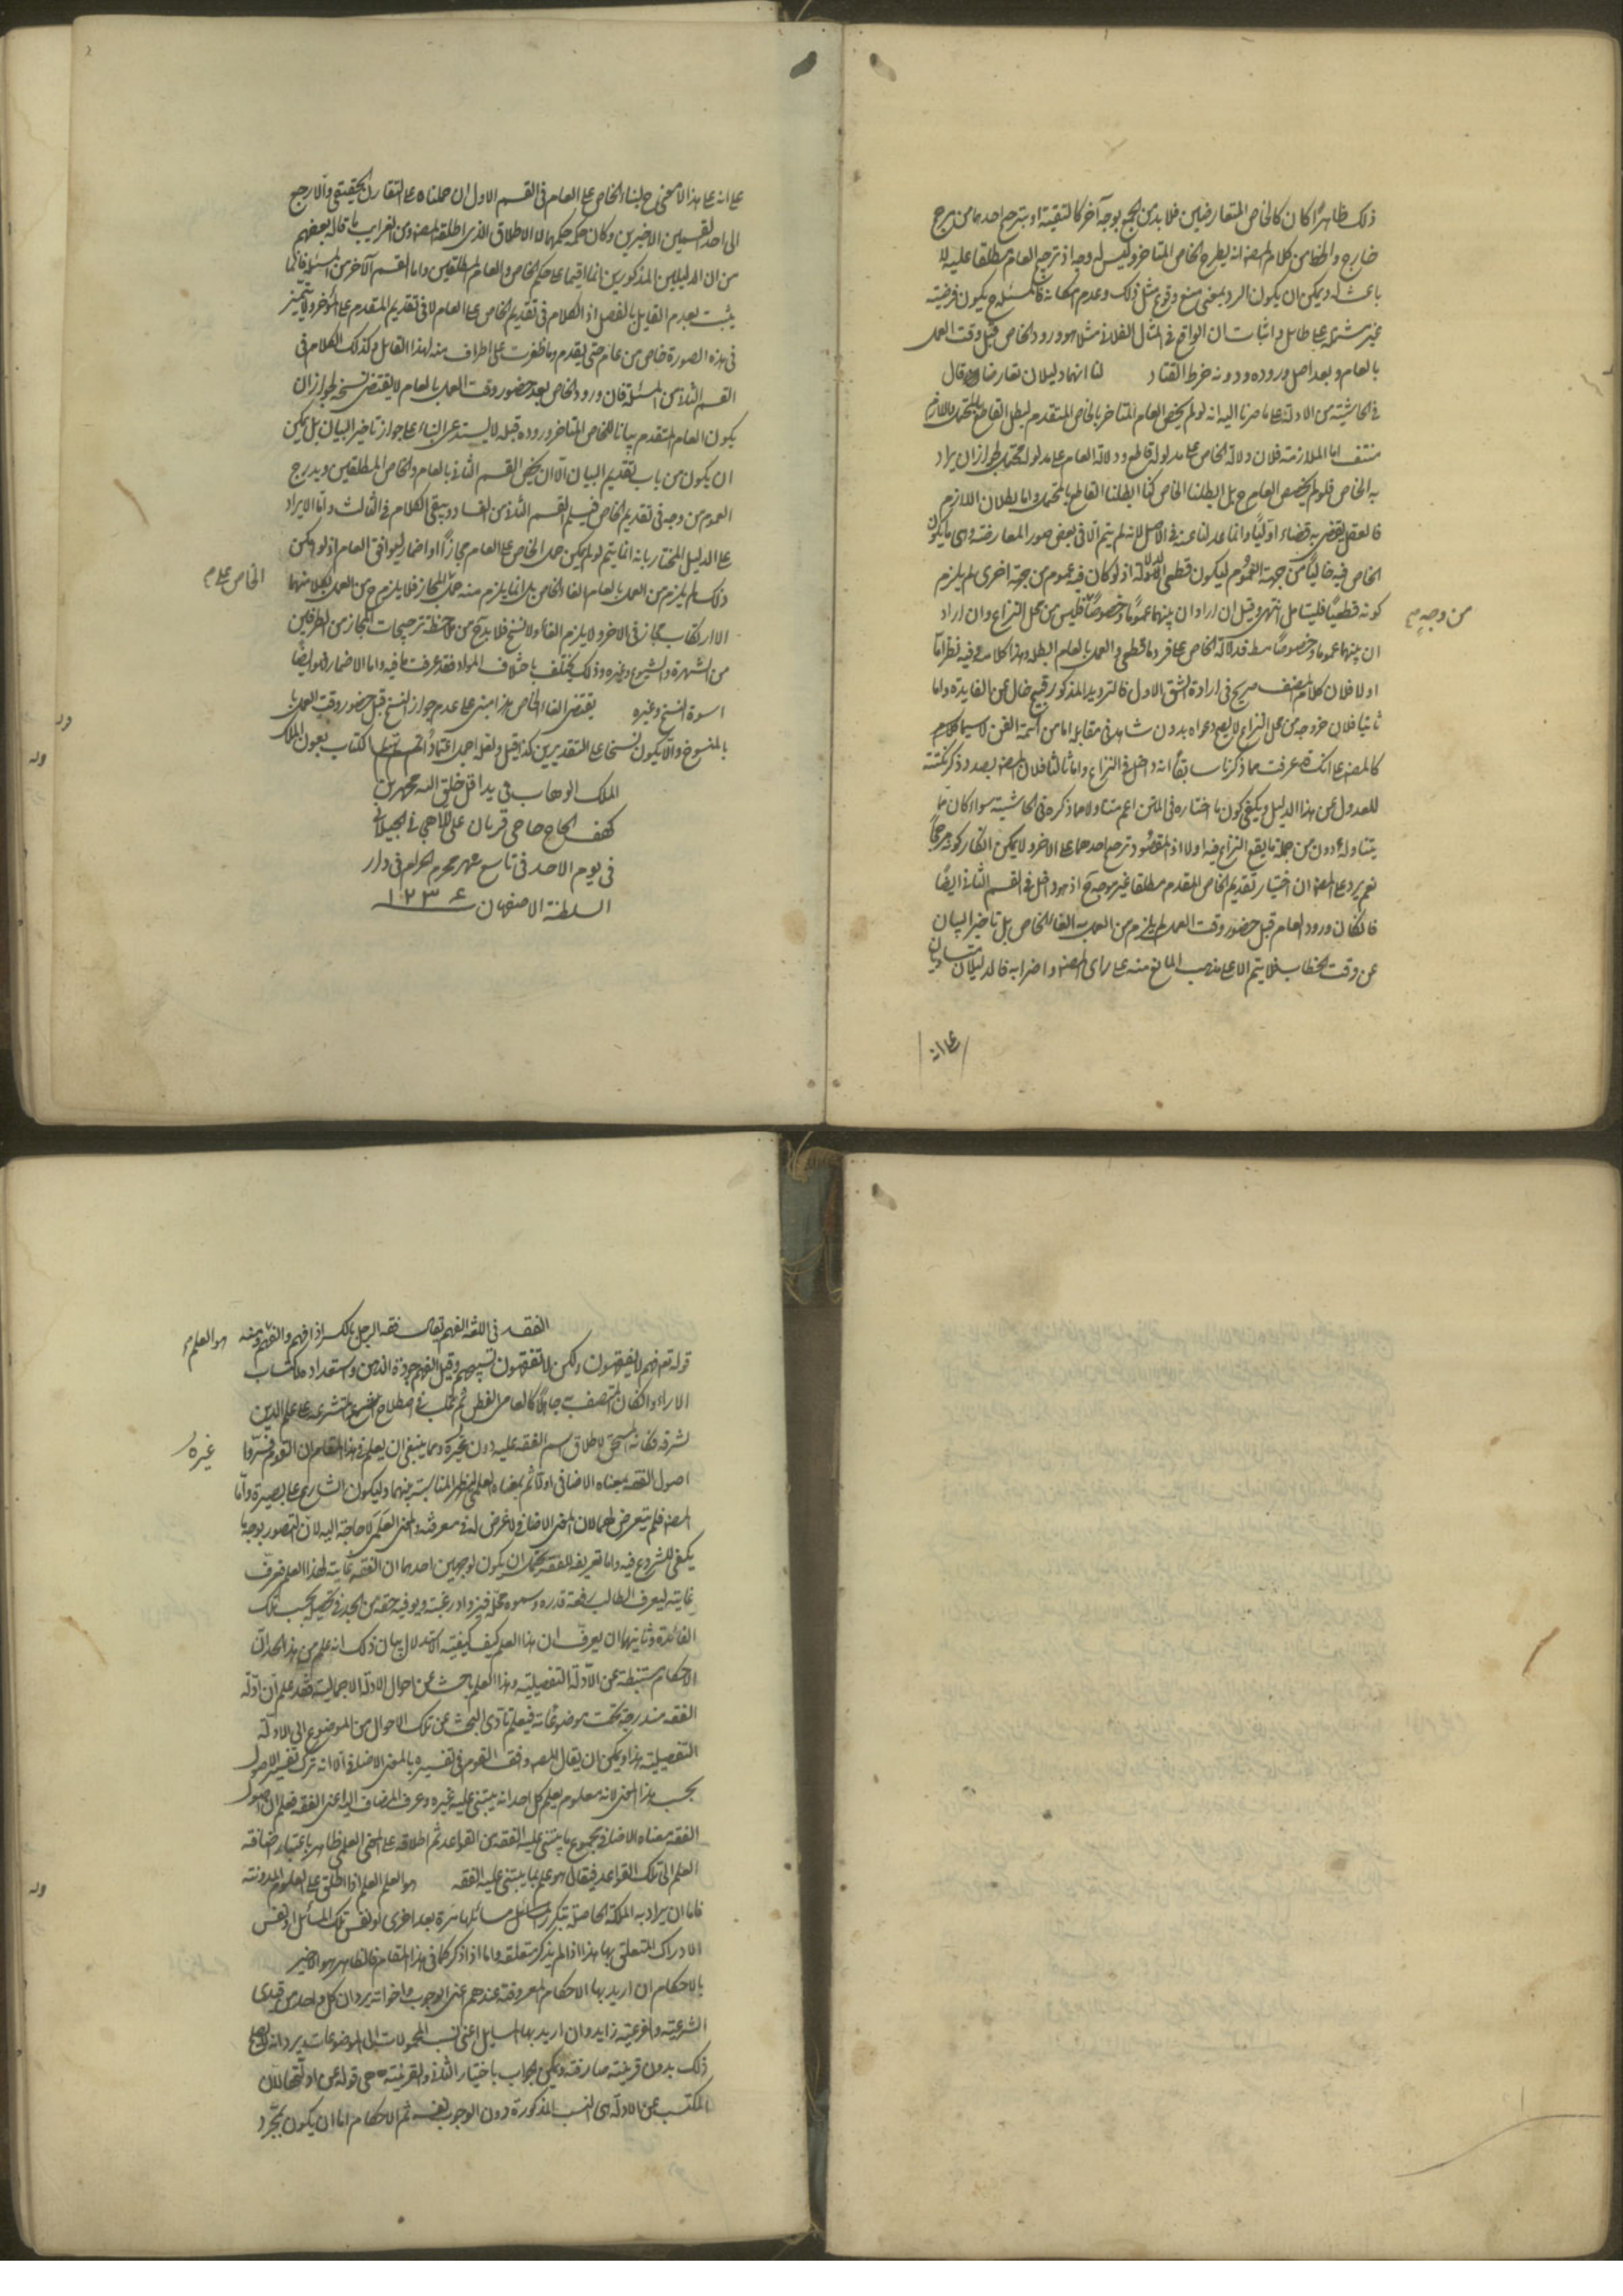 ذلك ظاهرًا كان كالخاص المتعارضين فلا بد من الجمع بوجه آخر كالتقية او يترجح احدهما من مرجح
خارج والظاهر من كلام المصنف انه يطرح الخاص المتاخر وليس له وجه اذ ترجيح العام مطلقا عليه لا
باعث له ويمكن ان يكون الرد بمعنى منع وقوع مثل ذلك وعدم امكانه فالمسئلة ح يكون فرضية
غير مشتملة على طائل واثبات ان الواقع في المثال الفلاني مثلا هو ورود الخاص قبل وقت العمل
بالعام وبعد اصل وروده ودونه خرط القتاد لنا انهما دليلان تعارضا وقال
في الحاشية من الادلة على ما صرنا اليه انه لو لم يخص العام المتاخر بالخاص المتقدم لبطل القاطع بالمحتمل واللازم
منتف اما الملازمة فلان دلالة الخاص على مدلوله قاطع ودلالة العام على مدلوله محتمل لجواز ان يراد
به الخاص فلو لم يخصص العام ح بل ابطلنا الخاص كنا ابطلنا القاطع بالمحتمل واما بطلان اللازم
فالعقل يقضي به قضاء اوليًا وانما عدلنا عنه في الاصل لانه لم يتم الا في بعض صور المعارضة وهي ما يكون
الخاص فيه خاليًا من جهة العموم ليكون قطعي الدلالة اذ لو كان فيه عموم من جهة اخرى لم يلزم
كونه قطعيًا فليتامل انتهى وقيل ان اراد ان بينهما عمومًا وخصوصًا فليس من محل النزاع وان اراد
من وجه م
ان بينهما عموما وخصوصًا مطلقا فدلالة الخاص على فرد ما قطعي والعمل بالعام ابطله وهذا كلامه وفيه نظر اما
اولا فلان كلام المصنف صريح في ارادة الشق الاول فالترديد المذكور قبيح خال عن الفايدة واما
ثانيا فلان خروجه من محل النزاع لا يصح دعواه بدون شاهد في مقابلة امام من ائمة الفن لا سيما
كالمصنف على انك قد عرفت مما ذكرنا سابقًا انه داخل في النزاع واما ثالثا فلان المصنف بصدد ذكر نكتة
للعدول عن هذا الدليل ويكفي كون ما اختاره في المتن اعم متناولا مما ذكره في الحاشية سواء كان ما
يتناوله دون من جملة ما يقع النزاع فيه اولا اذ المقصود ترجيح احدهما على الاخر ولا يمكن انكار كونه مرجحًا
نعم يرد على المصنف ان اختيار تقديم الخاص المقدم مطلقا غير موجه ح اذ هو داخل في القسم الثاني ايضًا
فان كان ورود العام قبل حضور وقت العمل لم يلزم من العمل به الغاء الخاص بل تاخير البيان
عن وقت الخطاب فلا يتم الا على مذهب المانع منه على راى المصنف واضرابه فالدليلان متساويان
على انه
على انه على هذا لا معنى ح لبناء الخاص على العام في القسم الاول ان حملناه على التقارن الحقيقي والا رجع
الى احد القسمين الاخيرين وكان حكمه حكمهما لا الاطلاق الذى اطلقه المصنف ومن الغرايب ما قاله بعضهم
من ان الدليلين المذكورين انما اقيما على حكم الخاص والعام المطلقين واما القسم الآخر من المسئلة فانما
يثبت بعدم القايل بالفصل اذ الكلام في تقديم الخاص على العام لا في تقديم المقدم على المؤخر ولا يتميز
في هذه الصورة خاص من عام حتى يقدم وما ظفرت على اطراف منه لهذا القايل وكذلك الكلام في
القسم الثاني من المسئلة فان ورود الخاص بعد حضور وقت العمل بالعام لا يقتضى نسخه لجواز ان
يكون العام المتقدم بيانا للخاص المتاخر وروده قبله لا يستدعى البناء على جواز تاخير البيان بل يمكن
ان يكون من باب تقديم البيان الا ان يخص القسم الثاني بالعام والخاص المطلقين ويدرج
العموم من وجه في تقديم الخاص فيسلم القسم الثاني من الفساد ويبقى الكلام في الثالث واما الايراد
على الدليل المختار بانه انما يتم لو لم يمكن حمل الخاص على العام مجازًا او اضمار ليوافق العام اذ لو امكن
ذلك لم يلزم من العمل بالعام الغاء الخاص بل انما يلزم منه حمله على المجاز فلا يلزم ح من العمل بكل منهما
الخاص على م
الا ارتكاب مجاز في الاخر ولا يلزم الغاء ولا نسخ فلا بد ح من ملاحظة ترجيحات المجاز من الطرفين
من الشهرة والشيوع وغيره وذلك يختلف باختلاف المواد فقد عرفت ما فيه واما الاضمار فله ايضًا
اسوة النسخ وغيره يقتضى الغاء الخاص هذا مبنى على عدم جواز النسخ قبل حضور وقت العمل
بالمنسوخ والا يكون نسخا على التقديرين كذا قيل ولعله اجمل اعتمادًا الكتاب بعون الملك
الملك الوهاب في يد اقل خلق الله محمد بن
كهف الحاج حاجى قربان على اللاهجي الجيلاني
في يوم الاحد في تاسع شهر محرم الحرام في دار
السلطنة الاصفهان ١٢٣٤
الفقه في اللغة الفهم يقال فقه الرجل بالكسر اذا فهم ومنه
هو العلم
قوله تعالى لا يفقهون ولكن لا تفقهون تسبيحهم وقيل الفهم جودة الذهن واستعداده لاكتساب
الاراء وان كان المتصف به جاهلًا كالعامى الفطن ثم غلب في اصطلاح المتشرعة على علم الدين
لشرفه فكانه استحق لاطلاق اسم الفقه عليه دون غيره ومما ينبغى ان يعلم في هذا المقام ان القوم فسروا
غيره
اصول الفقه بمعناه الاضافى اولًا ثم بمعناه العلمى ليظهر المناسبة بينهما وليكون الشارع على بصيرة واما
المصنف فلم يتعرض لهما لان المعنى الاضافي لا غرض له في معرفته والمعنى العلمى لا حاجة اليه لان التصور بوجه ما
يكفى للشروع فيه واما تعريفه للفقه فيحتمل ان يكون لوجهين احدهما ان الفقه غاية لهذا العلم فعرف
غايته ليعرف الطالب رفعة قدره وسمو محله فيزداد رغبته ويوفيه حقه من الجد في تحصيله بحسب تلك
الفائدة وثانيهما ان يعرف ان هذا العلم كيف كيفية الاستدلال بيان ذلك انه علم من هذا الحد ان
الاحكام مستنبطة عن الادلة التفصيلية وهذا العلم باحث عن احوال الادلة الاجمالية فقد علم ان ادلة
الفقه مندرجة تحت موضوعاته فيعلم تادى البحث عن تلك الاحوال من الموضوع الى الادلة
التفصيلية هذا ويمكن ان يقال المصنف وافق القوم في تفسيره بالمعنى الاضافي الا انه ترك تفسير الاصول
بحسب هذا المعنى لانه معلوم يعلم كل احد انه يبتنى عليه غيره وعرف المضاف اليه اعنى الفقه فعلم ان اصول
الفقه بمعناه الاضافي مجموع ما يبتنى عليه الفقه من القواعد ثم اطلاقه على المعنى العلمى ظاهر باعتبار اضافة
العلم الى تلك القواعد فيقال هو علم بما يبتنى عليه الفقه هو العلم العلم اذا اطلق على العلوم المدونة
فاما ان يراد به الملكة الحاصلة بتكرر مسائلها مرة بعد اخرى او نفس تلك المسائل او نفس
الادراك المتعلق بها هذا اذا لم يذكر متعلقه واما اذا ذكر كما في هذا المقام فالظاهر هو الاخير
بالاحكام ان اريد بها الاحكام المعروفة عندهم اعنى الوجوب واخواته يرد ان كل واحد من قيدى
الشرعية والفرعية زايد وان اريد بها المسايل اعنى نسب المحمولات الى الموضوعات يرد انه لا يصح
ذلك بدون قرينة صارفة ويمكن الجواب باختيار الثاني والقرينة هي قوله عن ادلتها لان
المكتسب عن الادلة هى النسب المذكورة دون الوجوب نفسه ثم الاحكام اما ان يكون بمجرد